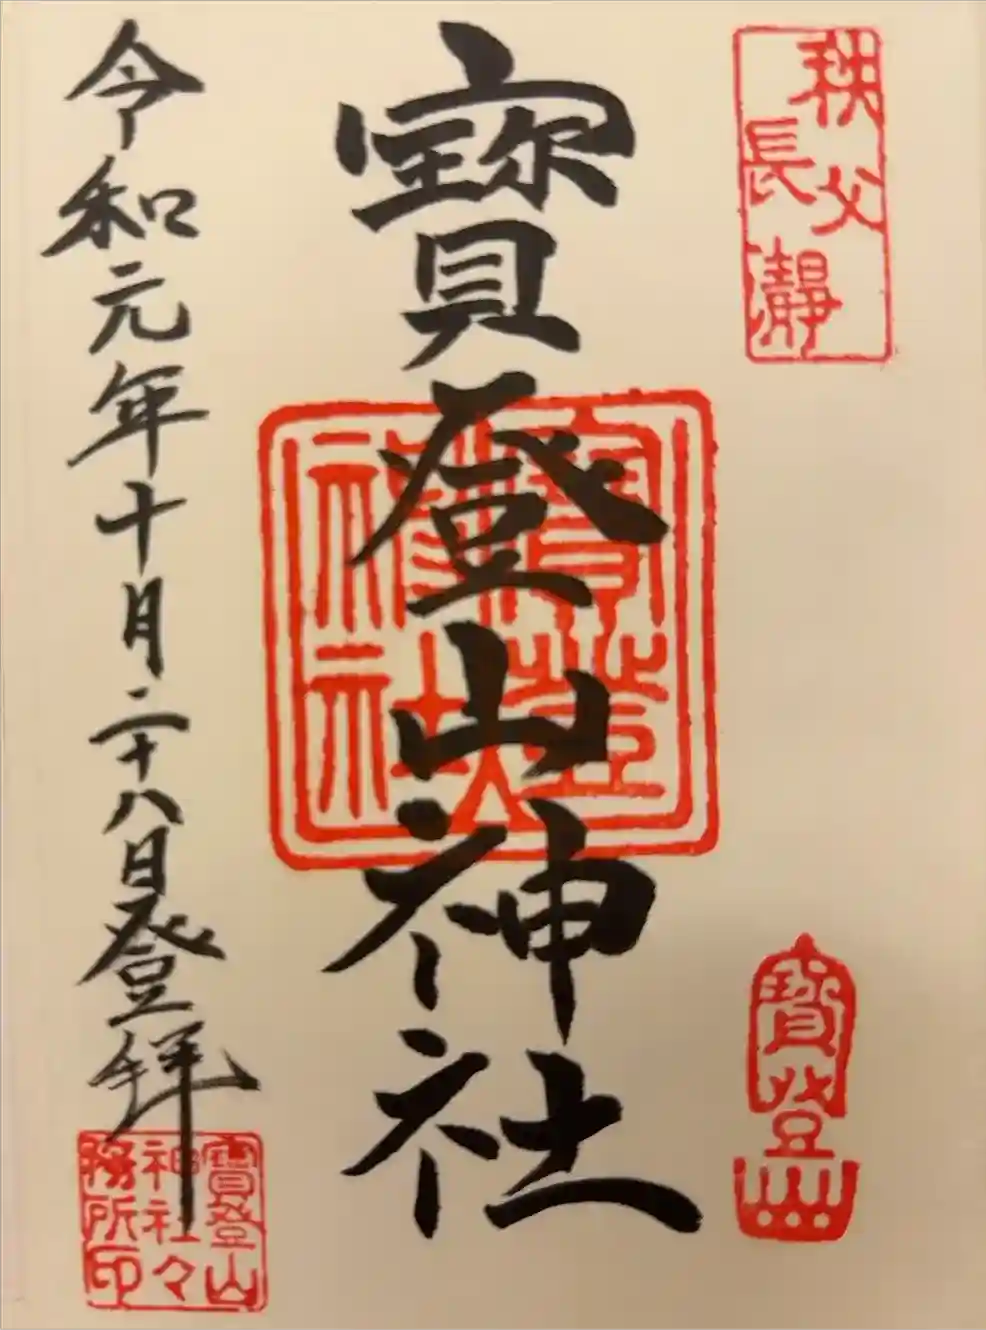 秩父
長瀞
寳登山
寳登山神社
寳登山神社
令和元年十月二十八日登拝
寳登山
神社々
務所印